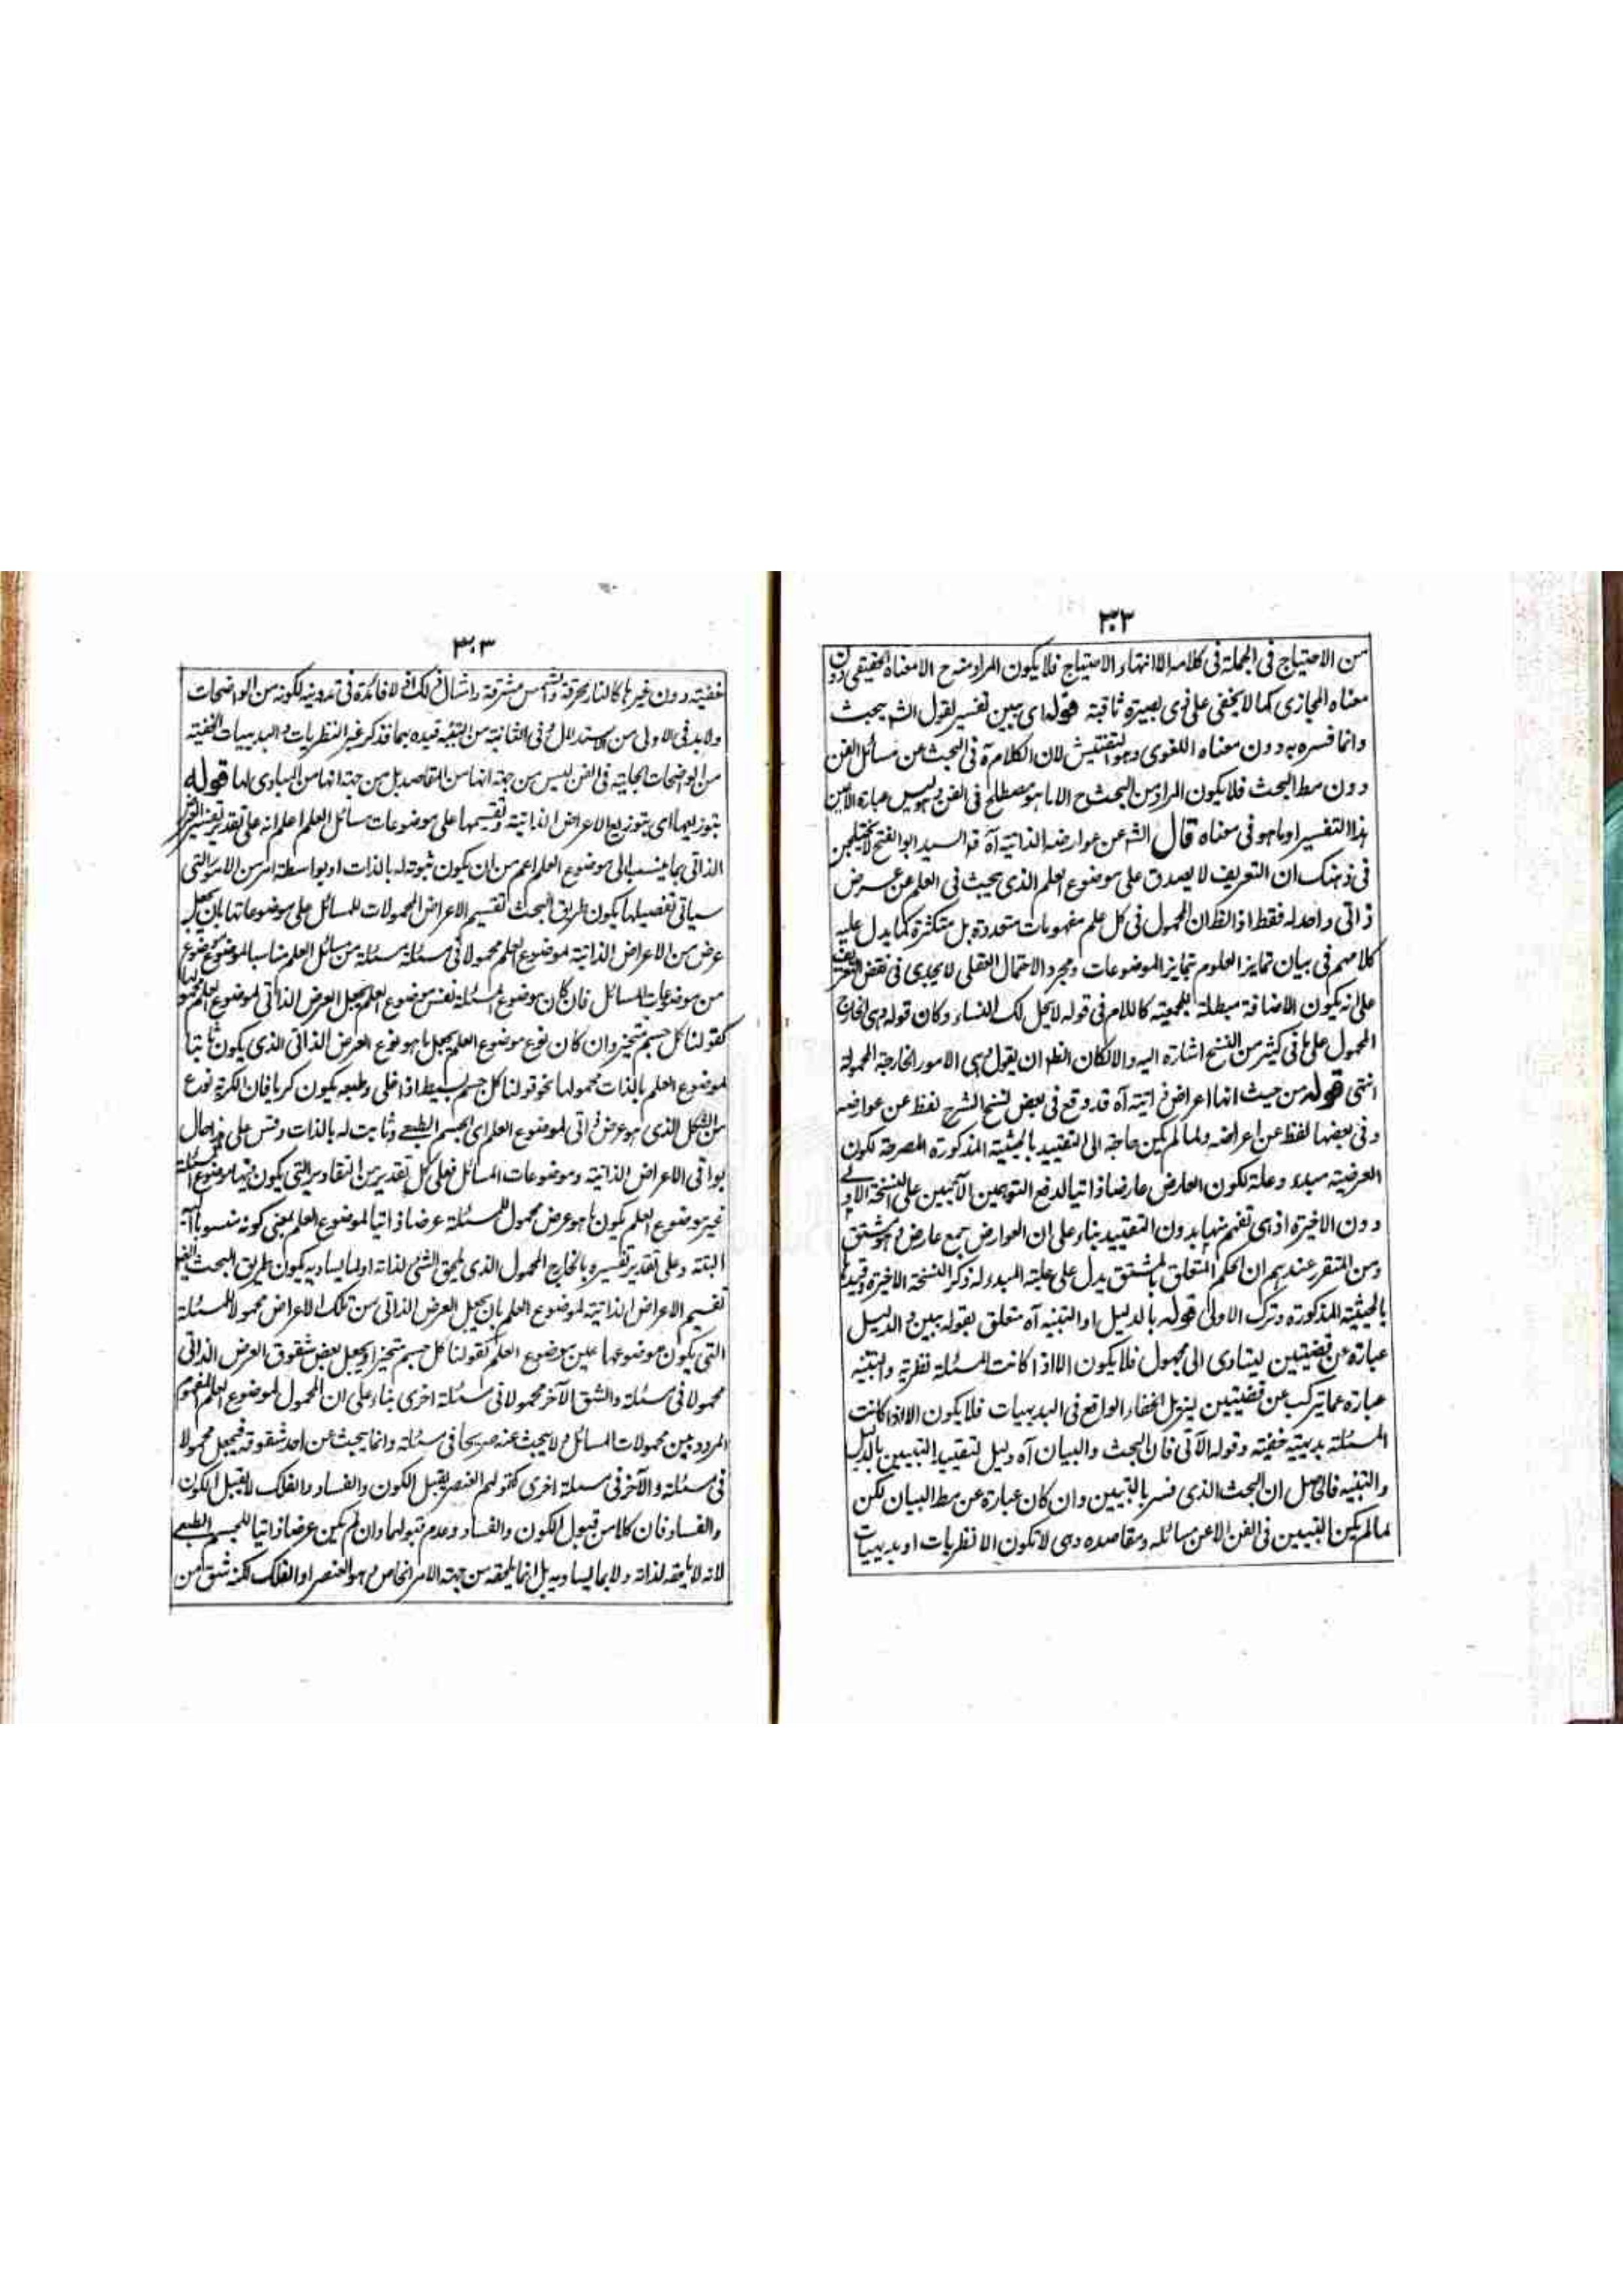 ٣٠٢
من الاحتياج فى الجملة فى كلامه الا انتهاء الاحتياج فلا يكون المراد منه ح الا معناه الحقيقى دون
معناه المجازى كما لا يخفى على ذوى بصيرة ثاقبة قوله اى يبين تفسير لقول الشـ يبحث
وانما فسره به دون معناه اللغوى وهو التفتيش لان الكلام آه فى البحث عن مسائل الفن
دون مط البحث فلا يكون المراد من البحث ح الا ما هو مصطلح فى الفن وليس عبارة الا من
هذا التفسير او ما هو فى معناه قال الشـ عن عوارضه الذاتية آه قد السيد ابو الفتح لا يختلجن
فى ذهنك ان التعريف لا يصدق على موضوع العلم الذى يبحث فى العلم عن عرض
ذاتى واحد له فقط اذ الظ ان المحمول فى كل علم مفهومات متعددة بل متكثرة كما يدل عليه
كلامهم فى بيان تمايز العلوم بتمايز الموضوعات ومجرد الاحتمال العقلى لا يجدى فى نقض التعريف
على انه يكون الاضافة مبطلة للجمعية كاللام فى قوله لا يحل لك النساء وكان قوله وهى الخارج
المحمول على ما فى كثير من النسخ اشارة اليه والا لكان الظ ان يقول وهى الامور الخارجة المحمولة
انتهى قوله من حيث انها اعراض ذاتية آه قد وقع فى بعض نسخ الشرح لفظ عن عوارضه
وفى بعضها لفظ عن اعراضه ولما لم يكن حاجة الى التقييد بالحيثية المذكورة المصرحة لكون
العرضية مبدء وعلة لكون العارض عارضا ذاتيا لدفع التوهمين الآتيين على النسخة الاولى
دون الاخيرة اذ هى تفهم منها بدون التقييد بناء على ان العوارض جمع عارض وهو مشتق
ومن المتقرر عندهم ان الحكم المتعلق بالمشتق يدل على علية المبدء له ذكر النسخة الاخيرة وقيدها
بالحيثية المذكورة وترك الاولى قوله بالدليل او التنبيه آه متعلق بقوله يبين والدليل
عبارة عن قضيتين ليتادى الى مجهول فلا يكون الا اذا كانت المسئلة نظرية والتنبيه
عبارة عما يتركب عن قضيتين ليزيل الخفاء الواقع فى البديهيات فلا يكون الا اذا كانت
المسئلة بديهية خفية وقوله الآتى فان البحث والبيان آه دليل لتعقيب التبيين بالدليل
والتنبيه فالحاصل ان البحث الذى فسر بالتبيين وان كان عبارة عن مط البيان لكن
لما لم يكن التبيين فى الفن الا عن مسائله ومقاصده وهى لا تكون الا نظريات او بديهيات
٣٠٣
خفية دون غيرها كالنار محرقة والشمس مشرقة وامثال ذلك اذ لا فائدة فى تدوينه لكونه من الواضحات
ولا بد فى الاولى من الاستدلال وفى الثانية من التنبيه قيده بهما فذكر غير النظريات والبديهيات الخفية
من الواضحات الجلية فى الفن ليس من جهة انها من المقاصد بل من جهة انها من المبادى لها قوله
بتوزيعها اى بتوزيع الاعراض الذاتية وتقسيمها على موضوعات مسائل العلم اعلم انه على تقدير تفسير العرض
الذاتى بما ينسب الى موضوع العلم اعم من ان يكون ثبوته له بالذات او بواسطة امر من الامور التى
سياتى تفصيلها يكون طريق البحث تقسيم الاعراض المحمولات للمسائل على موضوعاتها بان يجعل
عرض من الاعراض الذاتية لموضوع العلم محمولا فى مسئلة مسئلة من مسائل العلم مناسبا لموضوع موضوع
من موضوعات المسائل فان كان موضوع المسئلة نفس موضوع العلم يجعل العرض الذاتى لموضوع العلم محمولا لها
كقولنا كل جسم متحيز وان كان نوع موضوع العلم يجعل ما هو نوع العرض الذاتى الذى يكون ثابتا
لموضوع العلم بالذات محمولها نحو قولنا كل جسم بسيط اذا خلى وطبعه يكون كريا فان الكرية نوع
من الشكل الذى هو عرض ذاتى لموضوع العلم اى الجسم الطبيعى وثابت له بالذات وقس على هذا حال
بواقى الاعراض الذاتية وموضوعات المسائل فعلى كل تقدير من التقادير التى يكون فيها موضوع المسئلة
غير موضوع العلم يكون ما هو عرض محمول للمسئلة عرضا ذاتيا لموضوع العلم بمعنى كونه منسوبا اليه
البتة وعلى تقدير تفسيره بالخارج المحمول الذى يلحق الشئ لذاته او لما يساويه يكون طريق البحث ايضا
تقسيم الاعراض الذاتية لموضوع العلم بان يجعل العرض الذاتى من تلك الاعراض محمولا للمسئلة
التى يكون موضوعها عين موضوع العلم كقولنا كل جسم متحيز او يجعل بعض شقوق العرض الذاتى
محمولا فى مسئلة والشق الآخر محمولا فى مسئلة اخرى بناء على ان المحمول لموضوع العلم المفهوم
المردد بين محمولات المسائل ولا يبحث عنه صريحا فى مسئلة وانما يبحث عن احد شقوقه فيجعل محمولا
فى مسئلة والآخر فى مسئلة اخرى كقولهم العنصر يقبل الكون والفساد والفلك لا يقبل الكون
والفساد فان كلا من قبول الكون والفساد وعدم قبولهما وان لم يكن عرضا ذاتيا للجسم الطبيعى
لانه لا يلحقه لذاته ولا بما يساويه بل انما يلحقه من جهة الامر الخاص وهو العنصر او الفلك لكنه شق من